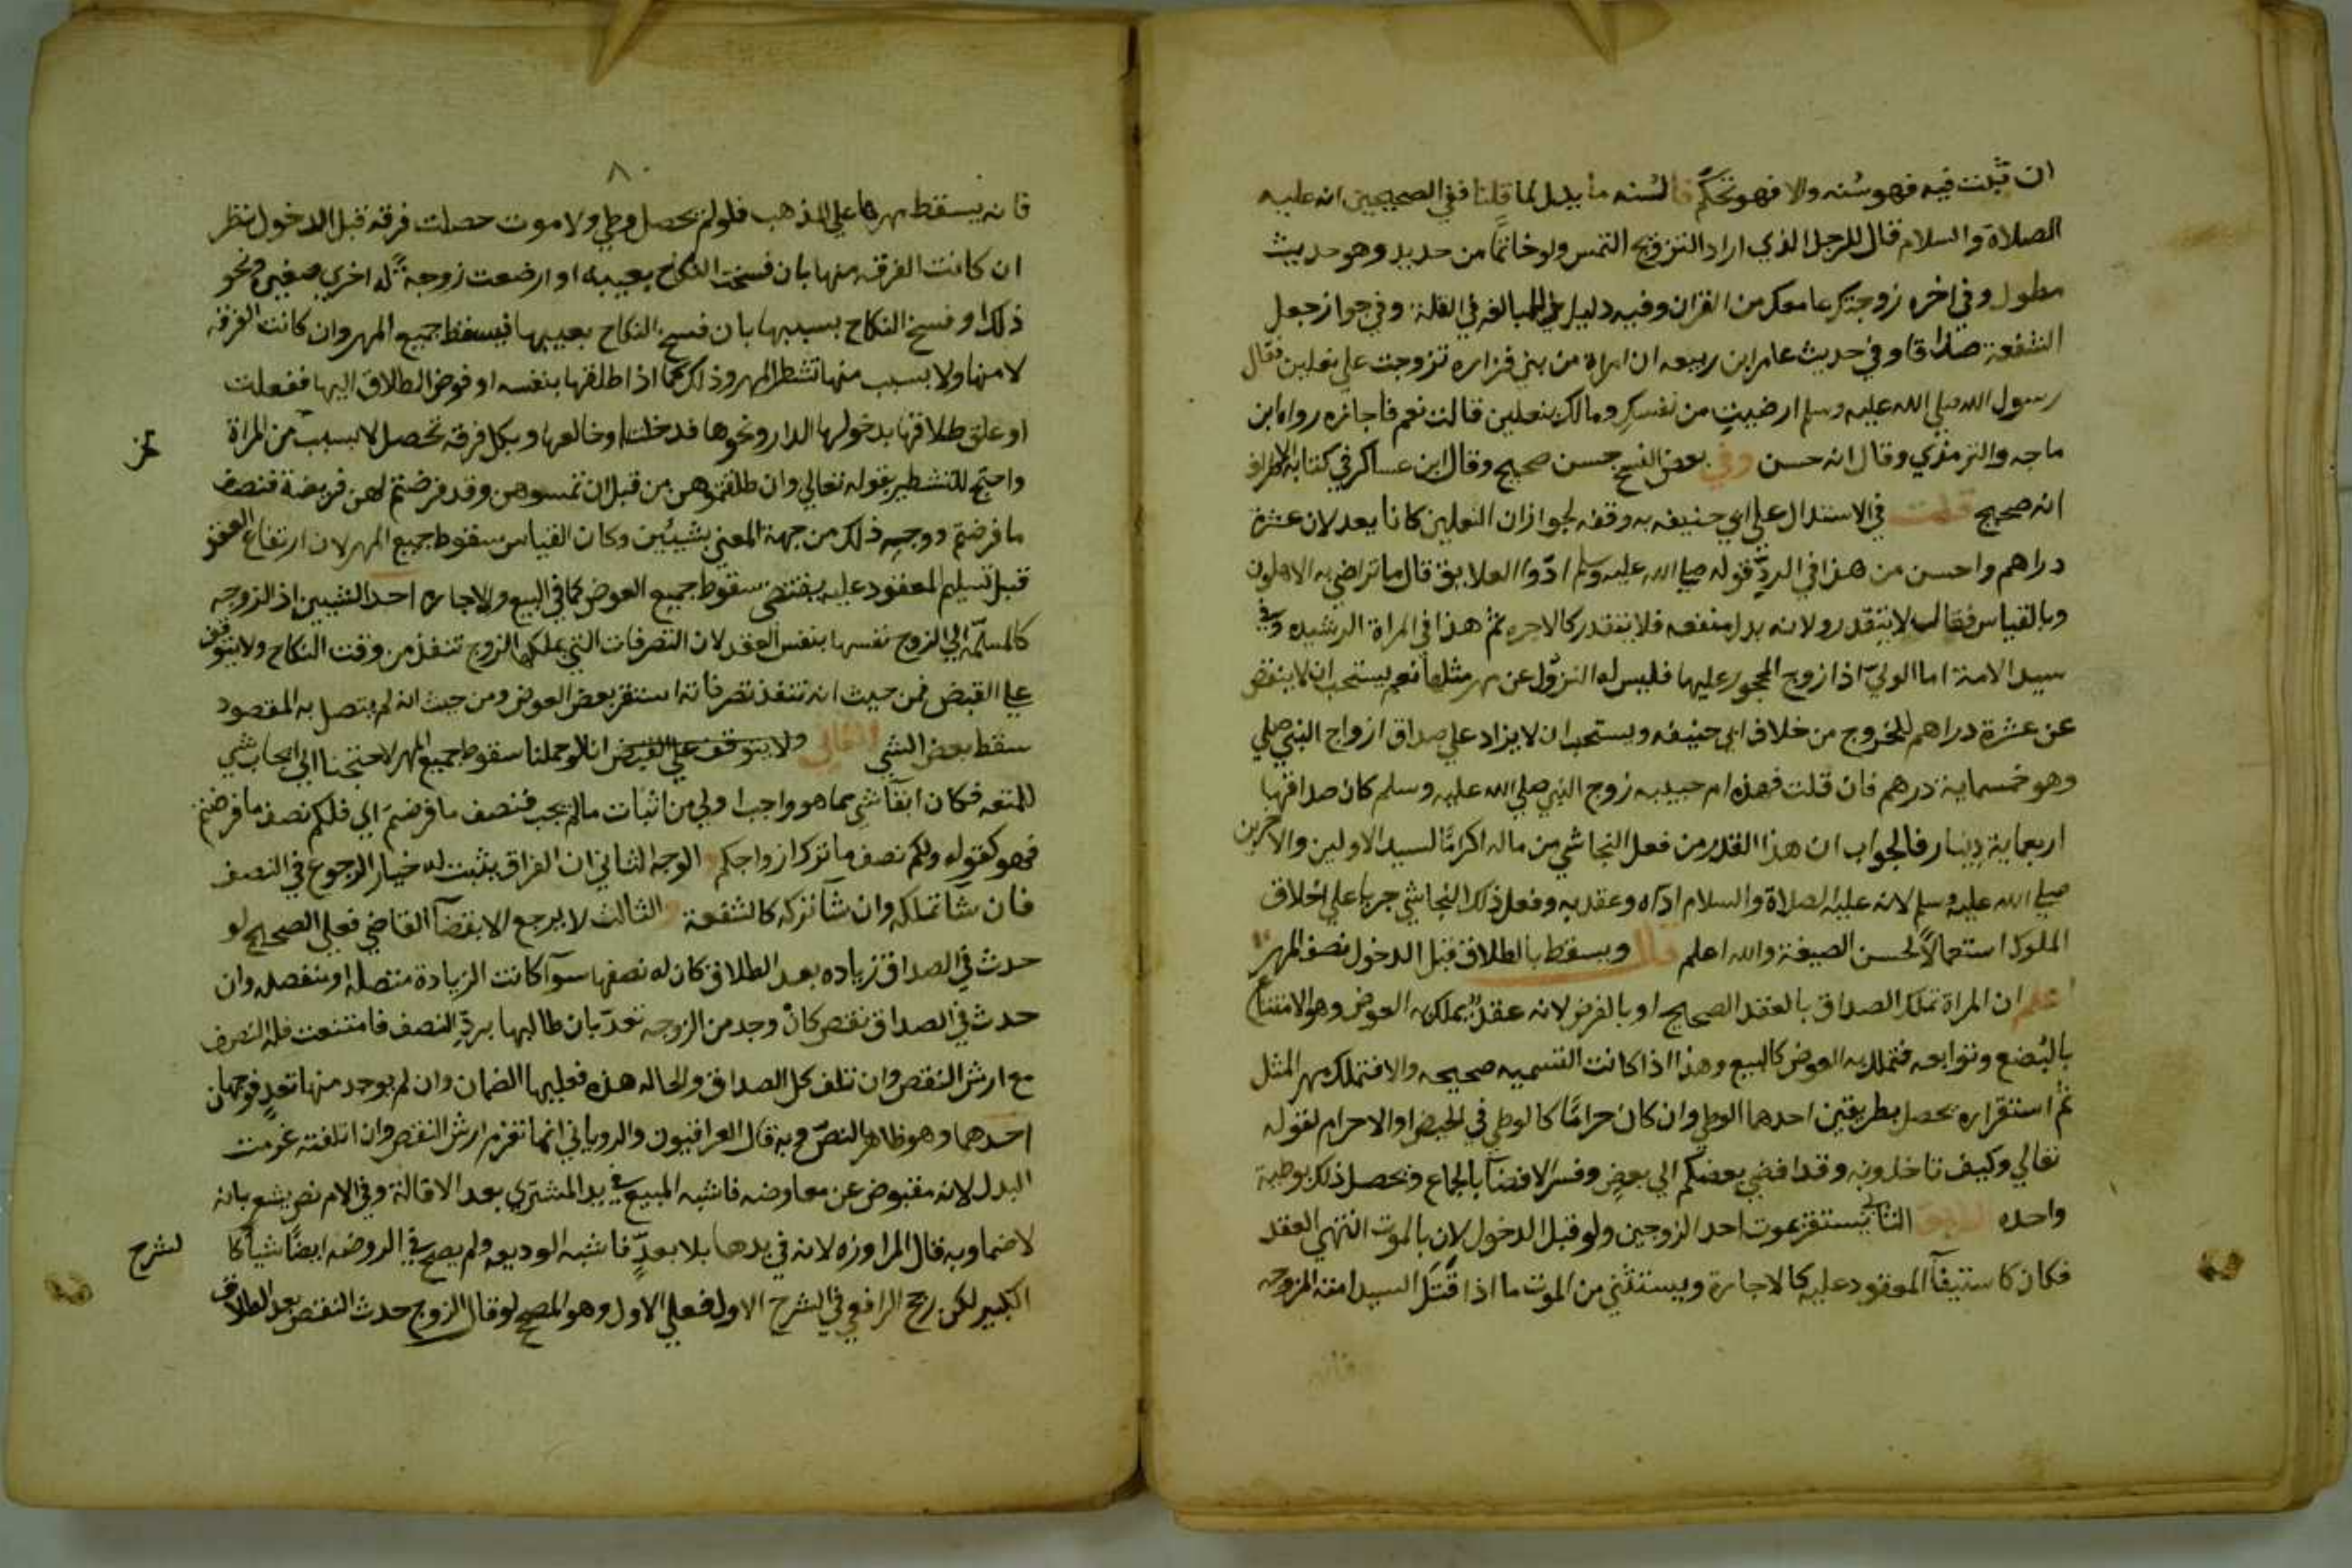 ان ثبت فيه فهو سنه والا فهو تحكم فالسنه ما يدل لما قلنا ففي الصحيحين انه عليه
الصلاة والسلام قال للرجل الذي اراد التزويج التمس ولو خاتما من حديد وهو حديث
مطول وفي اخره زوجتكها بما معك من القران وفيه دليل على المبالغه في القلة وفي جواز جعل
المنفعة صداقا وفي حديث عامر ابن ربيعه ان امراة من بني فزاره تزوجت علي نعلين فقال
رسول الله صلي الله عليه وسلم ارضيت من نفسك ومالك بنعلين قالت نعم فاجازه رواه ابن
ماجه والترمذي وقال انه حسن وفي بعض النسخ حسن صحيح وقال ابن عساكر في كتابه الاطراف
انه صحيح قلت في الاستدلال علي ابي حنيفه به وقفه لجواز ان النعلين كانا يعدلان عشرة
دراهم واحسن من هذا في الرد قوله صلي الله عليه وسلم ادوا العلايق قال ما تراضي به الاهلون
وبالقياس فقال لا يتقدر ولانه بدل منفعه فلا يتقدر كالاجره ثم هذا في المراة الرشيده وفي
سيد الامة اما الولي اذا زوج المحجور عليها فليس له النزول عن مهر مثلها نعم يستحب ان لا ينقص
عن عشرة دراهم للخروج من خلاف ابي حنيفه ويستحب ان لا يزاد علي صداق ازواج النبي صلي
وهو خمسماية درهم فان قلت فهذه ام حبيبه زوج النبي صلي الله عليه وسلم كان صداقها
اربعماية دينار فالجواب ان هذا القدر من فعل النجاشي من ماله اكراما لسيد الاولين والاخرين
صلي الله عليه وسلم لانه عليه الصلاة والسلام اداه وعقد به وفعل ذلك النجاشي جريا علي اخلاق
الملوك استعمالا لحسن الصيغة والله اعلم قال ويسقط بالطلاق قبل الدخول نصف المهر
اعلم ان المراة تملك الصداق بالعقد الصحيح او بالفرض لانه عقد يملك به العوض وهو الامتناع
بالبضع وتوابعه فتملك به العوض كالبيع وهذا اذا كانت التسميه صحيحه والا فتملك مهر المثل
ثم استقراره يحصل بطريقين احدهما الوطي وان كان حراما كالوطي في الحيض او الاحرام لقوله
تعالي وكيف تاخذونه وقد افضي بعضكم الي بعض وفسر الافضا بالجماع ويحصل ذلك بوطية
واحده الطريق الثاني يستقر بموت احد الزوجين ولو قبل الدخول لان بالموت انتهي العقد
فكان كاستيفآ المعقود عليه كالاجارة ويستثني من الموت ما اذا قتل السيد امته المزوجه
فانه
٨٠
فانه يسقط مهرها علي المذهب فلو لم يحصل وطي ولا موت حصلت فرقه قبل الدخول نظر
ان كانت الفرقه منها بان فسخت النكاح بعيبه او ارضعت زوجة له اخري صغيره ونحو
ذلك او فسخ النكاح بسببها بان فسخ النكاح بعيبها فيسقط جميع المهر وان كانت الفرقه
لا منها ولا بسبب منها تشطر المهر وذلك كما اذا طلقها بنفسه او فوض الطلاق اليها ففعلت
او علق طلاقها بدخولها الدار ونحوها فدخلت او خالعها وبكل فرقه تحصل لا بسبب من المراة
واحتج للتشطير بقوله تعالي وان طلقتموهن من قبل ان تمسوهن وقد فرضتم لهن فريضة فنصف
ما فرضتم ووجه ذلك من جهة المعني بشيئين وكان القياس سقوط جميع المهر لان ارتفاع العقد
قبل تسليم المعقود عليه يقتضي سقوط جميع العوض كما في البيع والاجاره احد الشيين اذ الزوجه
كالمسلمه الي الزوج نفسها بنفس العقد لان التصرفات التي يملكها الزوج تنفذ من وقت النكاح ولا يتوقف
علي القبض فمن حيث انه تنفذ تصرفاته استقر بعض العوض ومن حيث انه لم يتصل به المقصود
سقط بعض الشي الثاني ولا يتوقف علي القبض انا لو حملنا سقوط جميع المهر لاحتجنا الي ايجاب شي
للمتعه فكان ابقآ شي مما هو واجب اولي من اثبات ما لم يجب فنصف ما فرضتم اي فلكم نصف ما فرضتم
فهو كقوله ولكم نصف ما ترك ازواجكم والوجه الثاني ان الفراق يثبت له خيار الرجوع في النصف
فان شآ تملكه وان شآ تركه كالشفعة والثالث لا يرجع الا بقضآ القاضي فعلي الصحيح لو
حدث في الصداق زياده بعد الطلاق كان له نصفها سوآ كانت الزيادة متصله او منفصله وان
حدث في الصداق نقص كان وجد من الزوجه تعد بان طالبها برد النصف فامتنعت فله النصف
مع ارش النقص وان تلف كل الصداق والحاله هذه فعليها الضمان وان لم يوجد منها تعد فوجهان
احدهما وهو ظاهر النص وبه قال العراقيون والروياني انها تغرم ارش النقص وان اتلفته غرمت
البدل لانه مقبوض عن معاوضه فاشبه المبيع في يد المشتري بعد الاقالة وفي الام نص يشعر بانه
لا ضما وبه قال المراوزه لانه في يدها بلا تعد فاشبه الوديعه ولم يصحح في الروضه ايضا شيا كا
لشرح
الكبير لكن رجح الرافعي في الشرح الاول فعلي الاول وهو المصحح لو قال الزوج حدث النقص بعد الطلاق